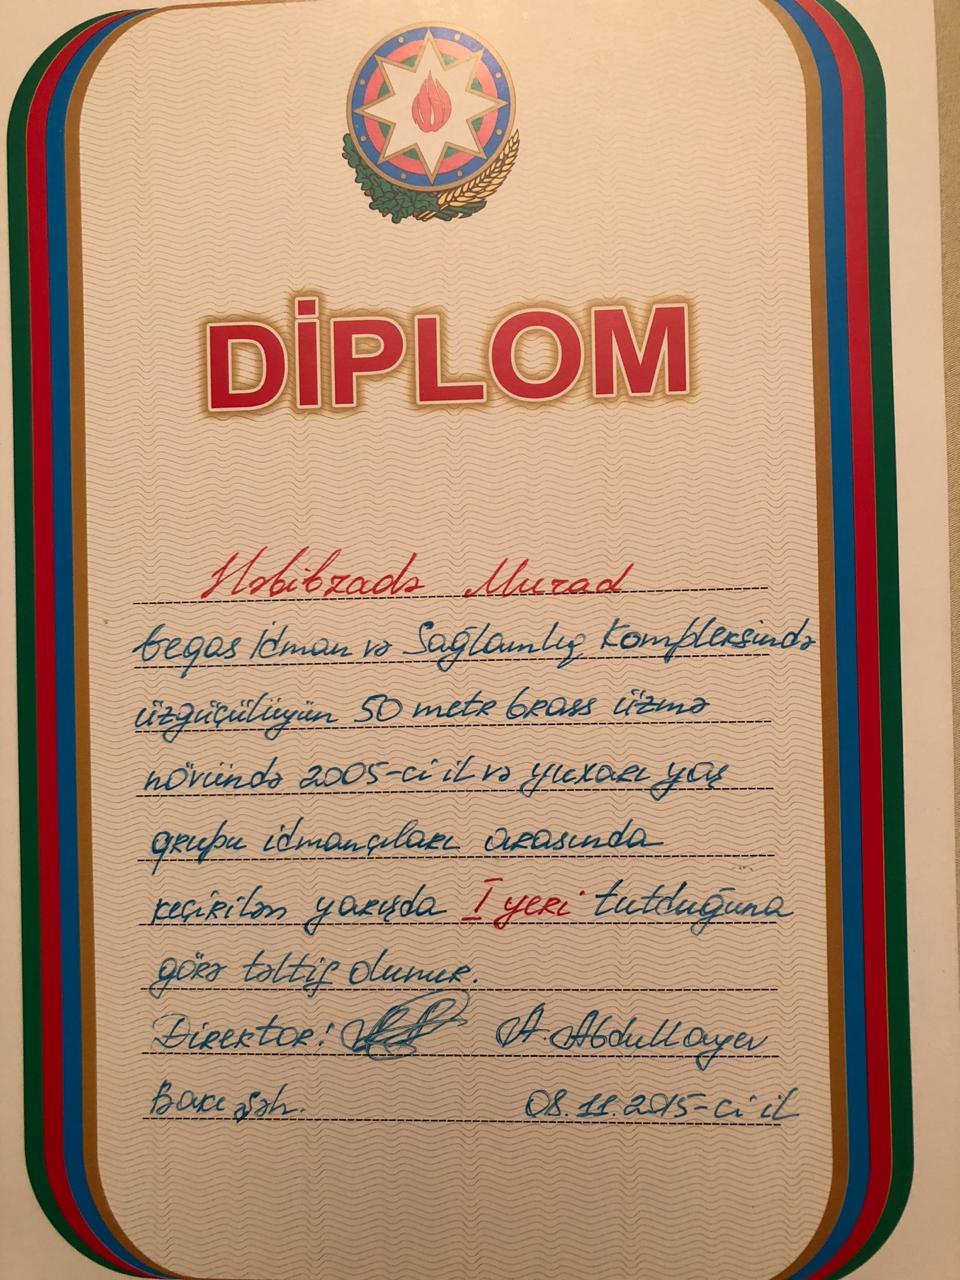 DİPLOM
Həbibzadə Murad
beqas İdman və Sağlamlıq Kompleksində
üzgüçülüyün 50 metr brass üzmə
növündə 2005-ci il və yuxarı yaş
qrupu idmançıları arasında
keçirilən yarışda I yeri tutduğuna
görə təltif olunur.
Direktor: A. Abdullayev
Bakı şəh. 08.11.2015-ci il